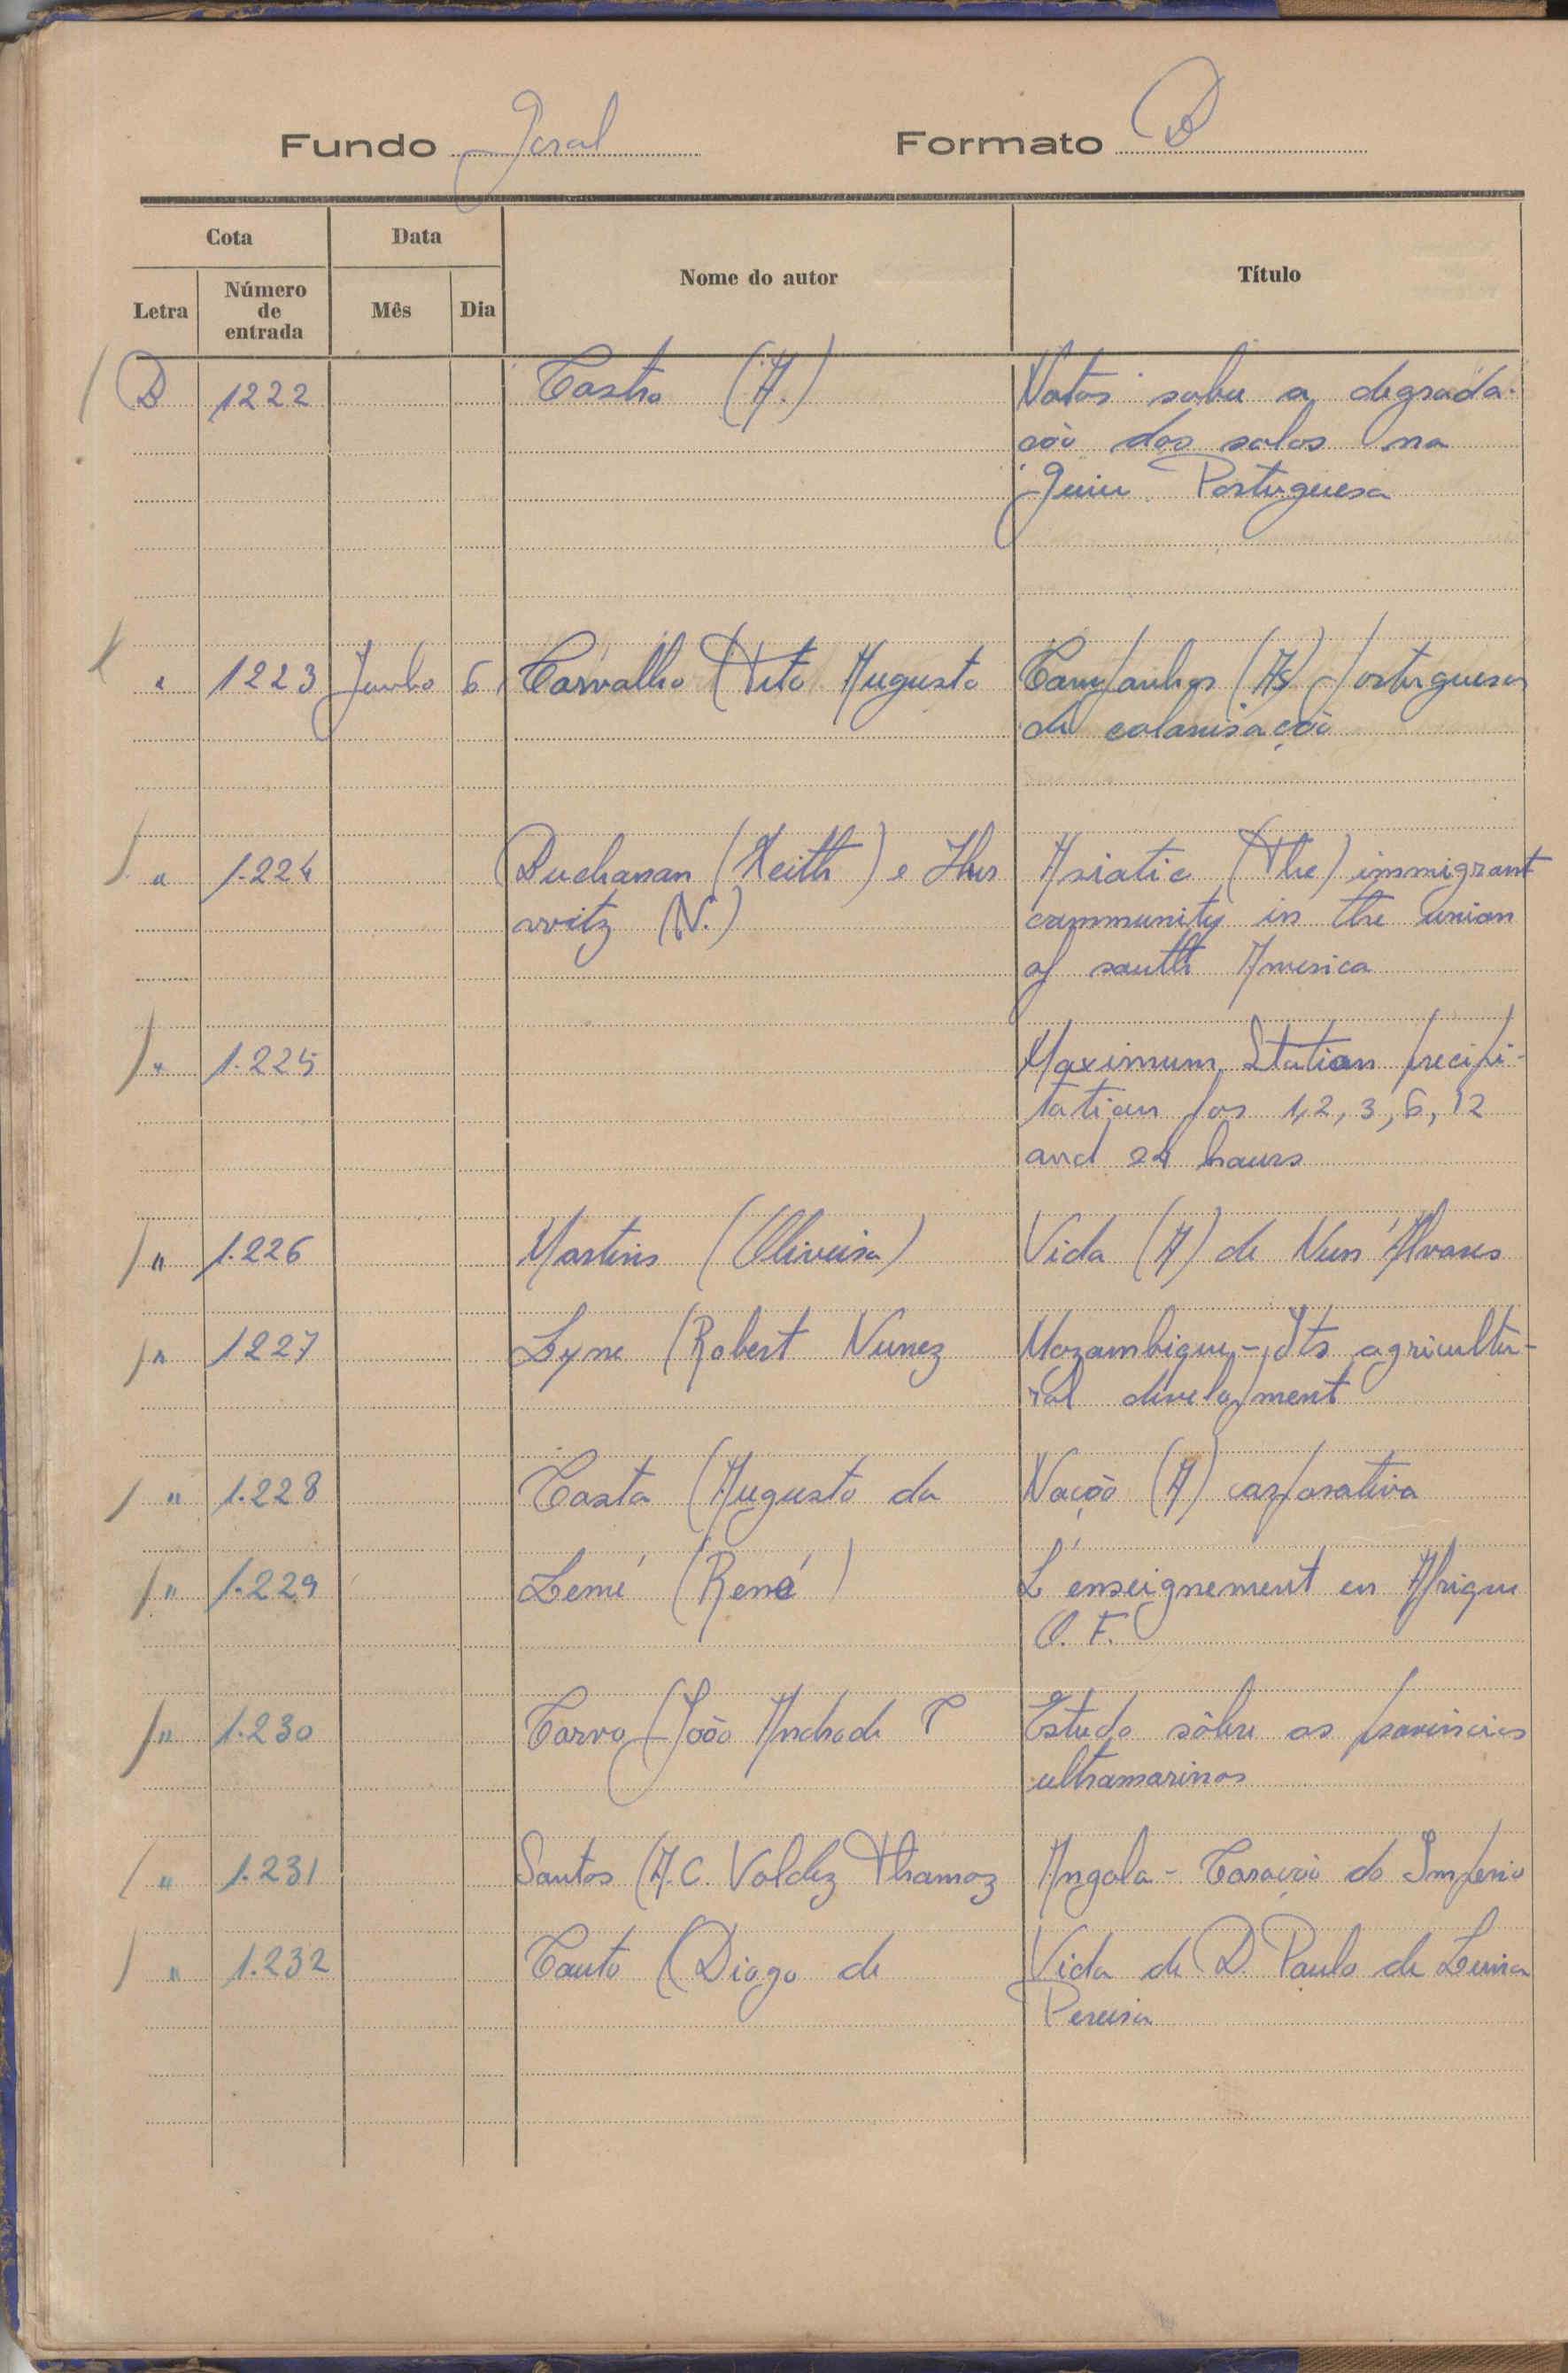 Fundo Geral Formato B
Cota Data Nome do autor Título
Letra Número de entrada Mês Dia
B 1222 Castro (A.) Notas sobre a degrada-
ção dos solos na
Guiné Portuguesa
" 1223 Junho 6 Carvalho (Tito Augusto Companhias (As) portuguesas
de colonisação
" 1.224 Buchanan (Keith) e Hur Asiatic (The) immigrant
witz (N.) community in the union
of south America
" 1.225 Maximum Station precipi-
tation for 1, 2, 3, 6, 12
and 24 hours
" 1.226 Martins (Oliveira) Vida (A) de Nun'Alvares
" 1227 Lyne (Robert Nunez Mozambique - Its agricultu-
ral development
" 1.228 Costa (Augusto da Nação (A) corporativa
" 1.229 Lemé (René) L'enseignement en Afrique
O. F.
" 1.230 Corvo (João Andrade C Estudo sôbre as provincias
ultramarinas
" 1.231 Santos (A. C. Valdez Thomaz Angola - Coração do Império
" 1.232 Couto (Diogo de Vida de D. Paulo de Lima
Pereira